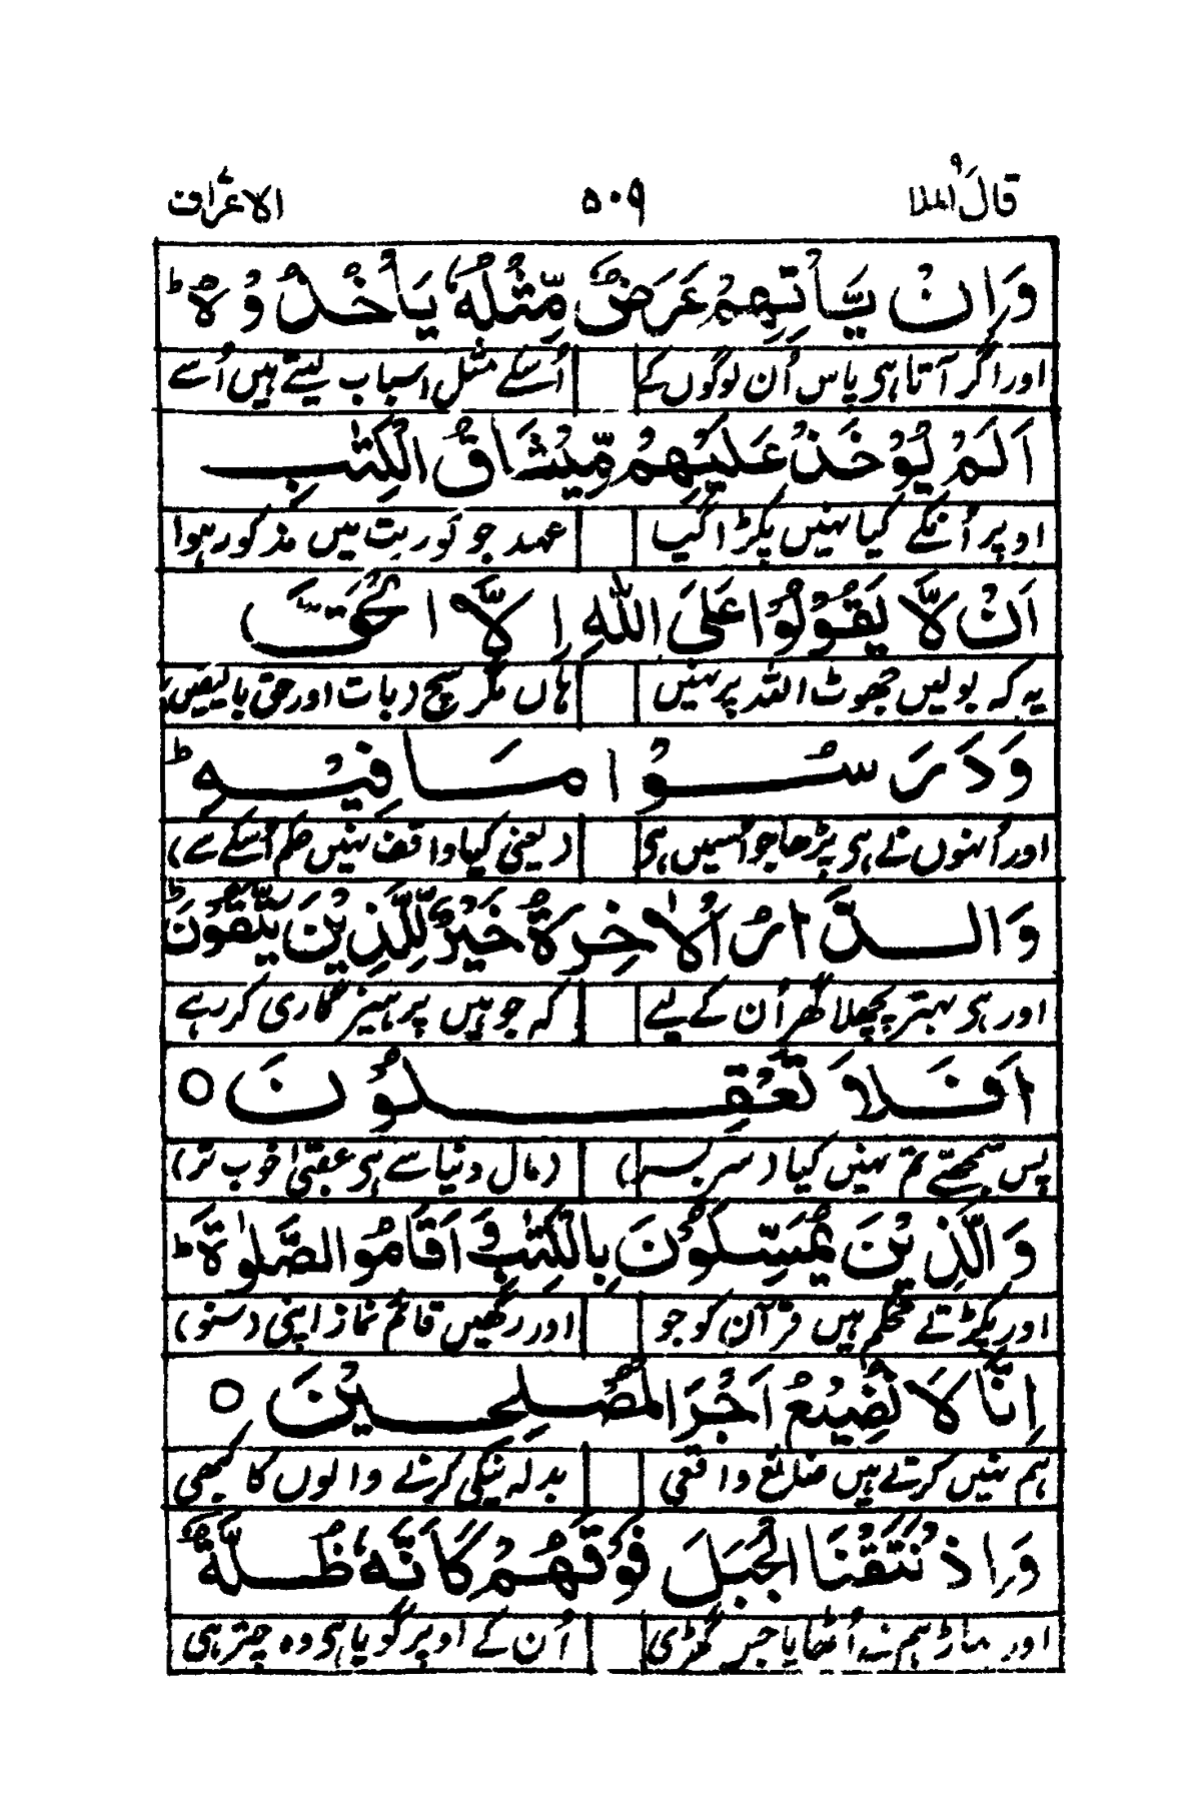 قال الملا ۹
۵۰۹
الاعراف ۷
وَاِنْ یَّاْتِهِمْ عَرَضٌ مِّثْلُهٗ یَاْخُذُوْهُ ؕ
اور اگر آتا ہی پاس اُن لوگوں کے اُسکے مثل اسباب لیتے ہیں اُسے
اَلَمْ یُوْخَذْ عَلَیْهِمْ مِّیْثَاقُ الْکِتٰبِ
اوپر اُنکے کیا نہیں پکڑا گیا عہد جو توریت میں مذکور ہوا
اَنْ لَّا یَقُوْلُوْا عَلَی اللّٰهِ اِلَّا الْحَقَّ
یہ کہ بولیں جھوٹ اللہ پر نہیں ہاں مگر سچ (بات اور حق بالیقیں)
وَدَرَسُوْا مَا فِیْهِ ؕ
اور اُنہوں نے ہی پڑھا جو اُسمیں ہی (یعنی کیا واقف نہیں حکم اُسکے سے)
وَالدَّارُ الْاٰخِرَةُ خَیْرٌ لِّلَّذِیْنَ یَتَّقُوْنَ ؕ
اور ہی بہتر پچھلا گھر اُن کے لیے کہ جو ہیں پرہیزگاری کر رہے
اَفَلَا تَعْقِلُوْنَ ○
پس سمجھتے تم نہیں کیا (سربسر) (مال دنیا سے ہی عقبیٰ خوب تر)
وَالَّذِیْنَ یُمَسِّکُوْنَ بِالْکِتٰبِ وَ اَقَامُوا الصَّلٰوةَ ؕ
اور پکڑتے محکم ہیں قرآن کو جو اور رکھیں قائم نماز اپنی (سنو)
اِنَّا لَا نُضِیْعُ اَجْرَ الْمُصْلِحِیْنَ ○
ہم نہیں کرتے ہیں ضائع واقعی بدلہ نیکی کرنے والوں کا کبھی
وَاِذْ نَتَقْنَا الْجَبَلَ فَوْقَهُمْ کَاَنَّهٗ ظُلَّةٌ
اور ہم نے اُٹھایا جس گھڑی اُن کے اوپر گویا ہی وہ چتر ہی